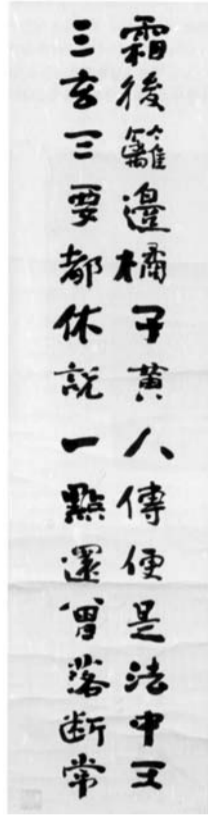 霜後籬邊橘子黃人傳便是法中王
三玄三要都休說一點還曾落斷常